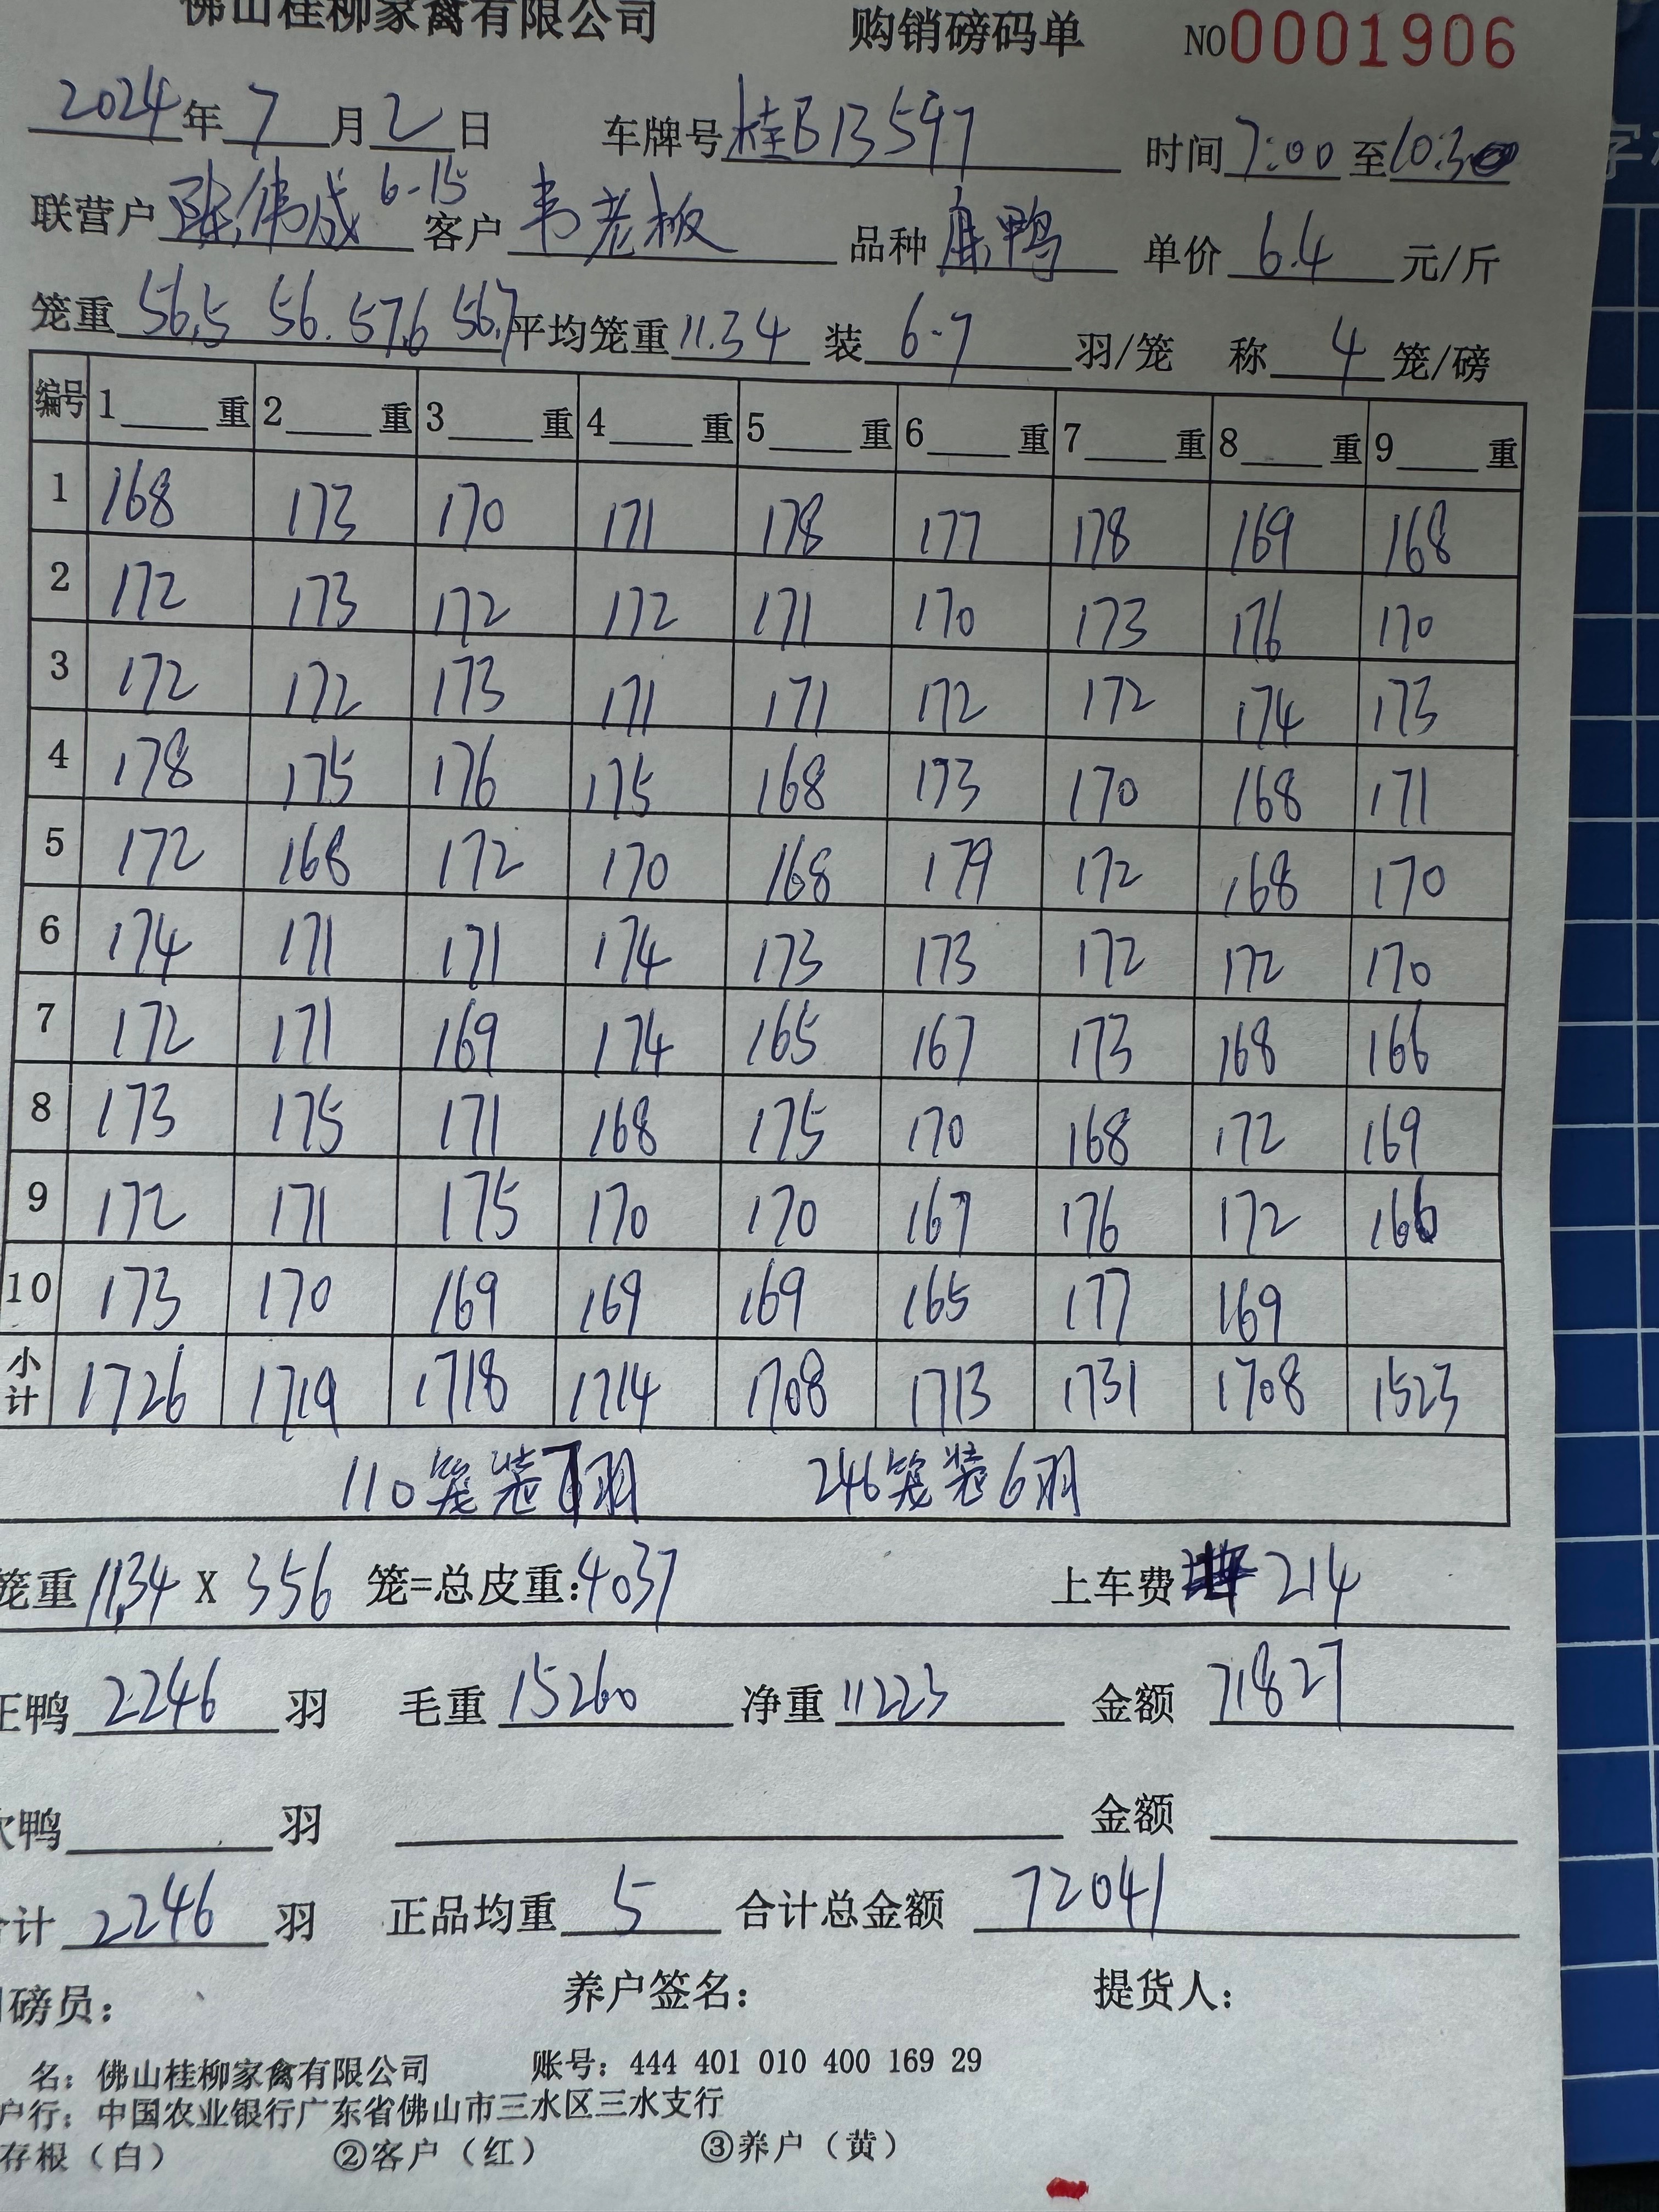 佛山桂柳家禽有限公司 购销磅码单 NO0001906
2024年7月2日 车牌号桂B13597 时间7:00至10:30
联营户陈伟成 6-15 客户韦老板 品种麻鸭 单价6.4元/斤
笼重56.5 56. 57.6 56.7平均笼重11.34 装6-7羽/笼 称4笼/磅
编号 1重 2重 3重 4重 5重 6重 7重 8重 9重
1 168 173 170 171 178 177 178 169 168
2 172 173 172 172 171 170 173 176 170
3 172 172 173 171 171 172 172 174 173
4 178 175 176 175 168 173 170 168 171
5 172 168 172 170 168 179 172 168 170
6 174 171 171 174 173 173 172 172 170
7 172 171 169 174 165 167 173 168 166
8 173 175 171 168 175 170 168 172 169
9 172 171 175 170 170 167 176 172 166
10 173 170 169 169 169 165 177 169
小计 1726 1719 1718 1714 1708 1713 1731 1708 1523
110笼装7羽 246笼装6羽
笼重11.34 X 356 笼=总皮重:4037 上车费 214
正鸭2246羽 毛重15260 净重11223 金额71827
次鸭 羽 金额
合计2246羽 正品均重5 合计总金额72041
磅员: 养户签名: 提货人:
名: 佛山桂柳家禽有限公司 账号: 444 401 010 400 169 29
户行: 中国农业银行广东省佛山市三水区三水支行
存根（白） ②客户（红） ③养户（黄）